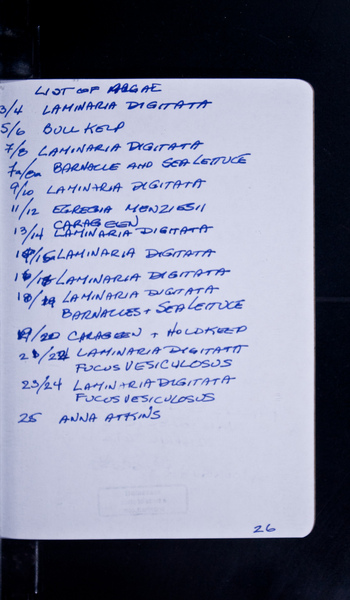 LIST OF ALGAE
3/4 LAMINARIA DIGITATA
5/6 BULL KELP
7/8 LAMINARIA DIGITATA
7a/8a BARNACLE AND SEA LETTUCE
9/10 LAMINARIA DIGITATA
11/12 EGREGIA MENZIESII
CARAGEEN
13/14 LAMINARIA DIGITATA
LAMINARIA DIGITATA
LAMINARIA DIGITATA
18/19 LAMINARIA DIGITATA
BARNACLES + SEA LETTUCE
19/20 CARAGEEN + HOLDKEEP
LAMINARIA DIGITATA
FUCUS VESICULOSUS
23/24 LAMINARIA DIGITATA
FUCUS VESICULOSUS
25 ANNA ATKINS
26